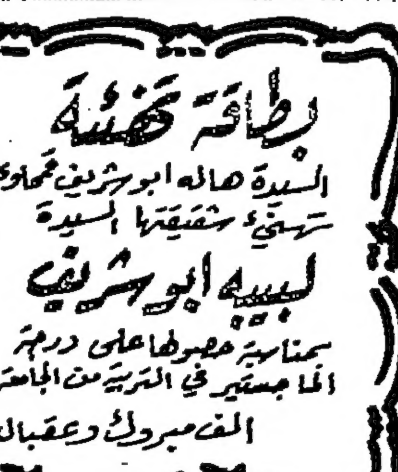 بطاقة تهنئة
السيدة هاله ابو شريف قمحاوي
تهنيء شقيقتها السيدة
لبيبه ابو شريف
بمناسبة حصولها على درجة
الماجستير في التربية من الجامعة
الف مبروك وعقبال